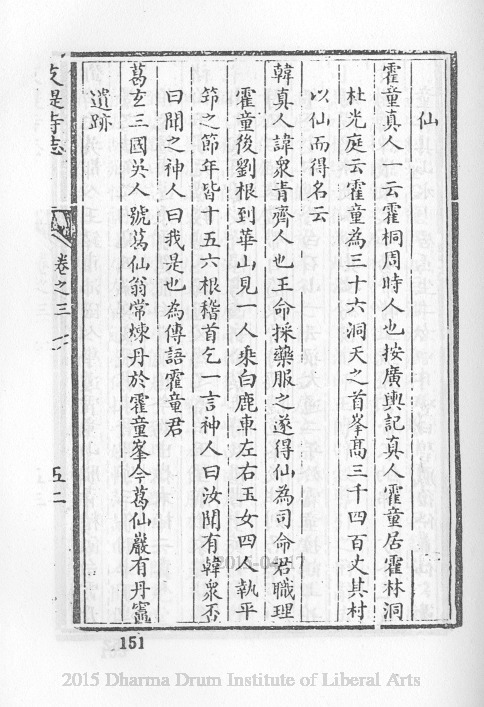 仙
霍童真人一云霍桐周時人也按廣輿記真人霍童居霍林洞
杜光庭云霍童為三十六洞天之首峯髙三千四百丈其村
以仙而得名云
韓真人諱衆青齊人也王命採藥服之遂得仙為司命君職理
霍童後劉根到華山見一人乘白鹿車左右玉女四人執平
節之節年皆十五六根稽首乞一言神人曰汝聞有韓衆否
曰聞之神人曰我是也為傳語霍童君
葛玄三國吳人號葛仙翁常煉丹於霍童峯今葛仙巖有丹竈
遺跡
支提寺志
卷之三
五二
151
2015 Dharma Drum Institute of Liberal Arts